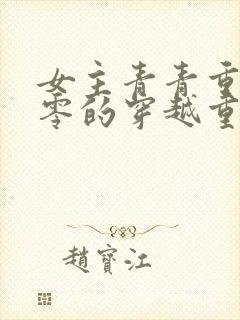 女主青青重
零的穿越重
趙寶江